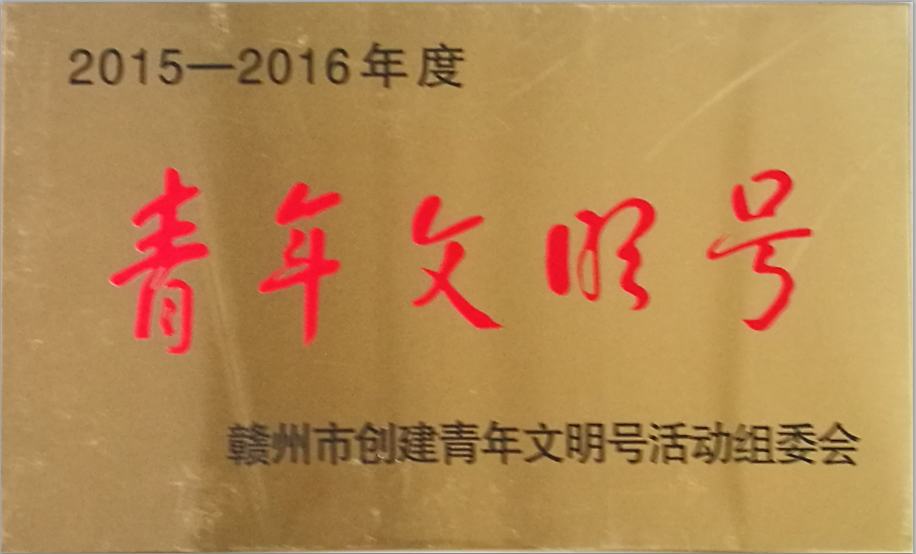 2015—2016年度
青年文明号
赣州市创建青年文明号活动组委会